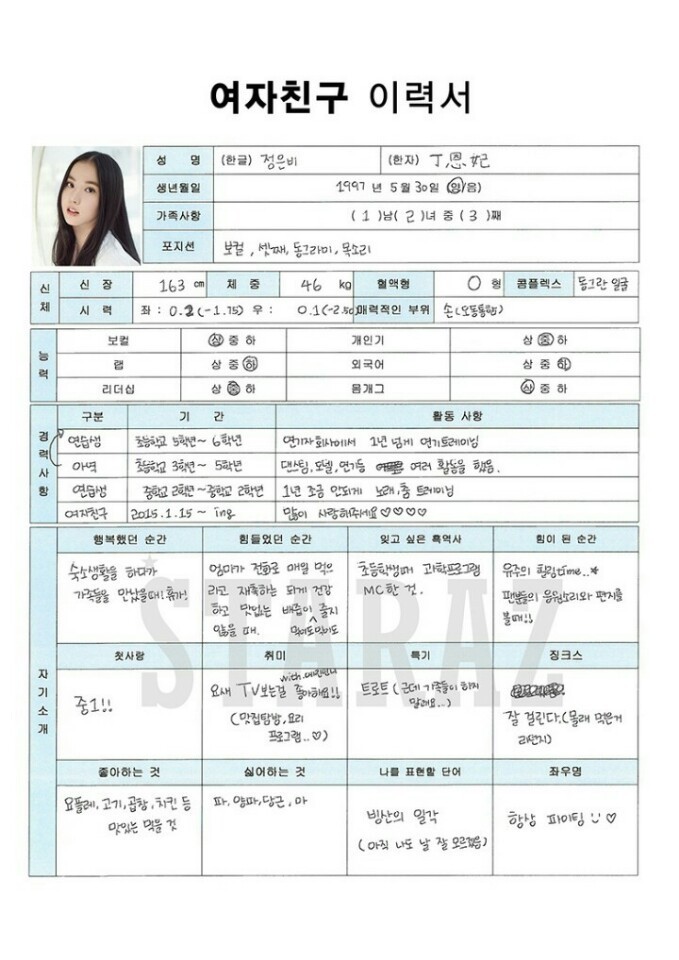 여자친구 이력서
성 명 (한글) 정은비 (한자) 丁恩妃
생년월일 1997 년 5월 30일 (양/음)
가족사항 ( 1 )남( 2 )녀 중 ( 3 )째
포지션 보컬, 셋째, 동그라미, 목소리
신체 신 장 163 cm 체 중 46 kg 혈액형 O 형 콤플렉스 동그란 얼굴
시 력 좌 : 0.2(-1.75) 우 : 0.1(-2.50) 매력적인 부위 손(오동통함)
능력 보컬 상 중 하 개인기 상 중 하
랩 상 중 하 외국어 상 중 하
리더십 상 중 하 몸개그 상 중 하
경력사항 구분 기 간 활동 사항
연습생 초등학교 5학년~ 6학년 연기자회사에서 1년 넘게 연기트레이닝
아역 초등학교 3학년~ 5학년 댄스팀, 모델, 연기등 여러 활동을 했음.
연습생 중학교 2학년~중학교 2학년 1년 조금 안되게 노래, 춤 트레이닝
여자친구 2015.1.15 ~ ing 많이 사랑해주세요♡♡♡♡
자기소개
행복했던 순간 힘들었던 순간 잊고 싶은 흑역사 힘이 된 순간
숙소생활을 하다가 엄마가 전화로 매일 먹으 초등학생때 과학프로그램 유주의 힐링time..*
가족들을 만났을때! 휴가! 라고 재촉하는 되게 건강 MC한 것. 팬분들의 응원소리와 편지를
하고 맛없는 배즙이 줄지 볼때!!
않을 때. 먹어도먹어도
STARAZ
첫사랑 취미 특기 징크스
중1!! 요새 TV보는걸 좋아해요!! 트로트 (근데 가족들이 하지
with.예린언니 말래요..) 잘 걸린다.(몰래 먹은거
(맛집탐방, 요리 라던지)
프로그램..♡)
좋아하는 것 싫어하는 것 나를 표현할 단어 좌우명
요플레, 고기, 곱창, 치킨 등 파, 양파, 당근, 마 빙산의 일각 항상 파이팅 ♡
맛있는 먹을 것 (아직 나도 날 잘 모르겠음)